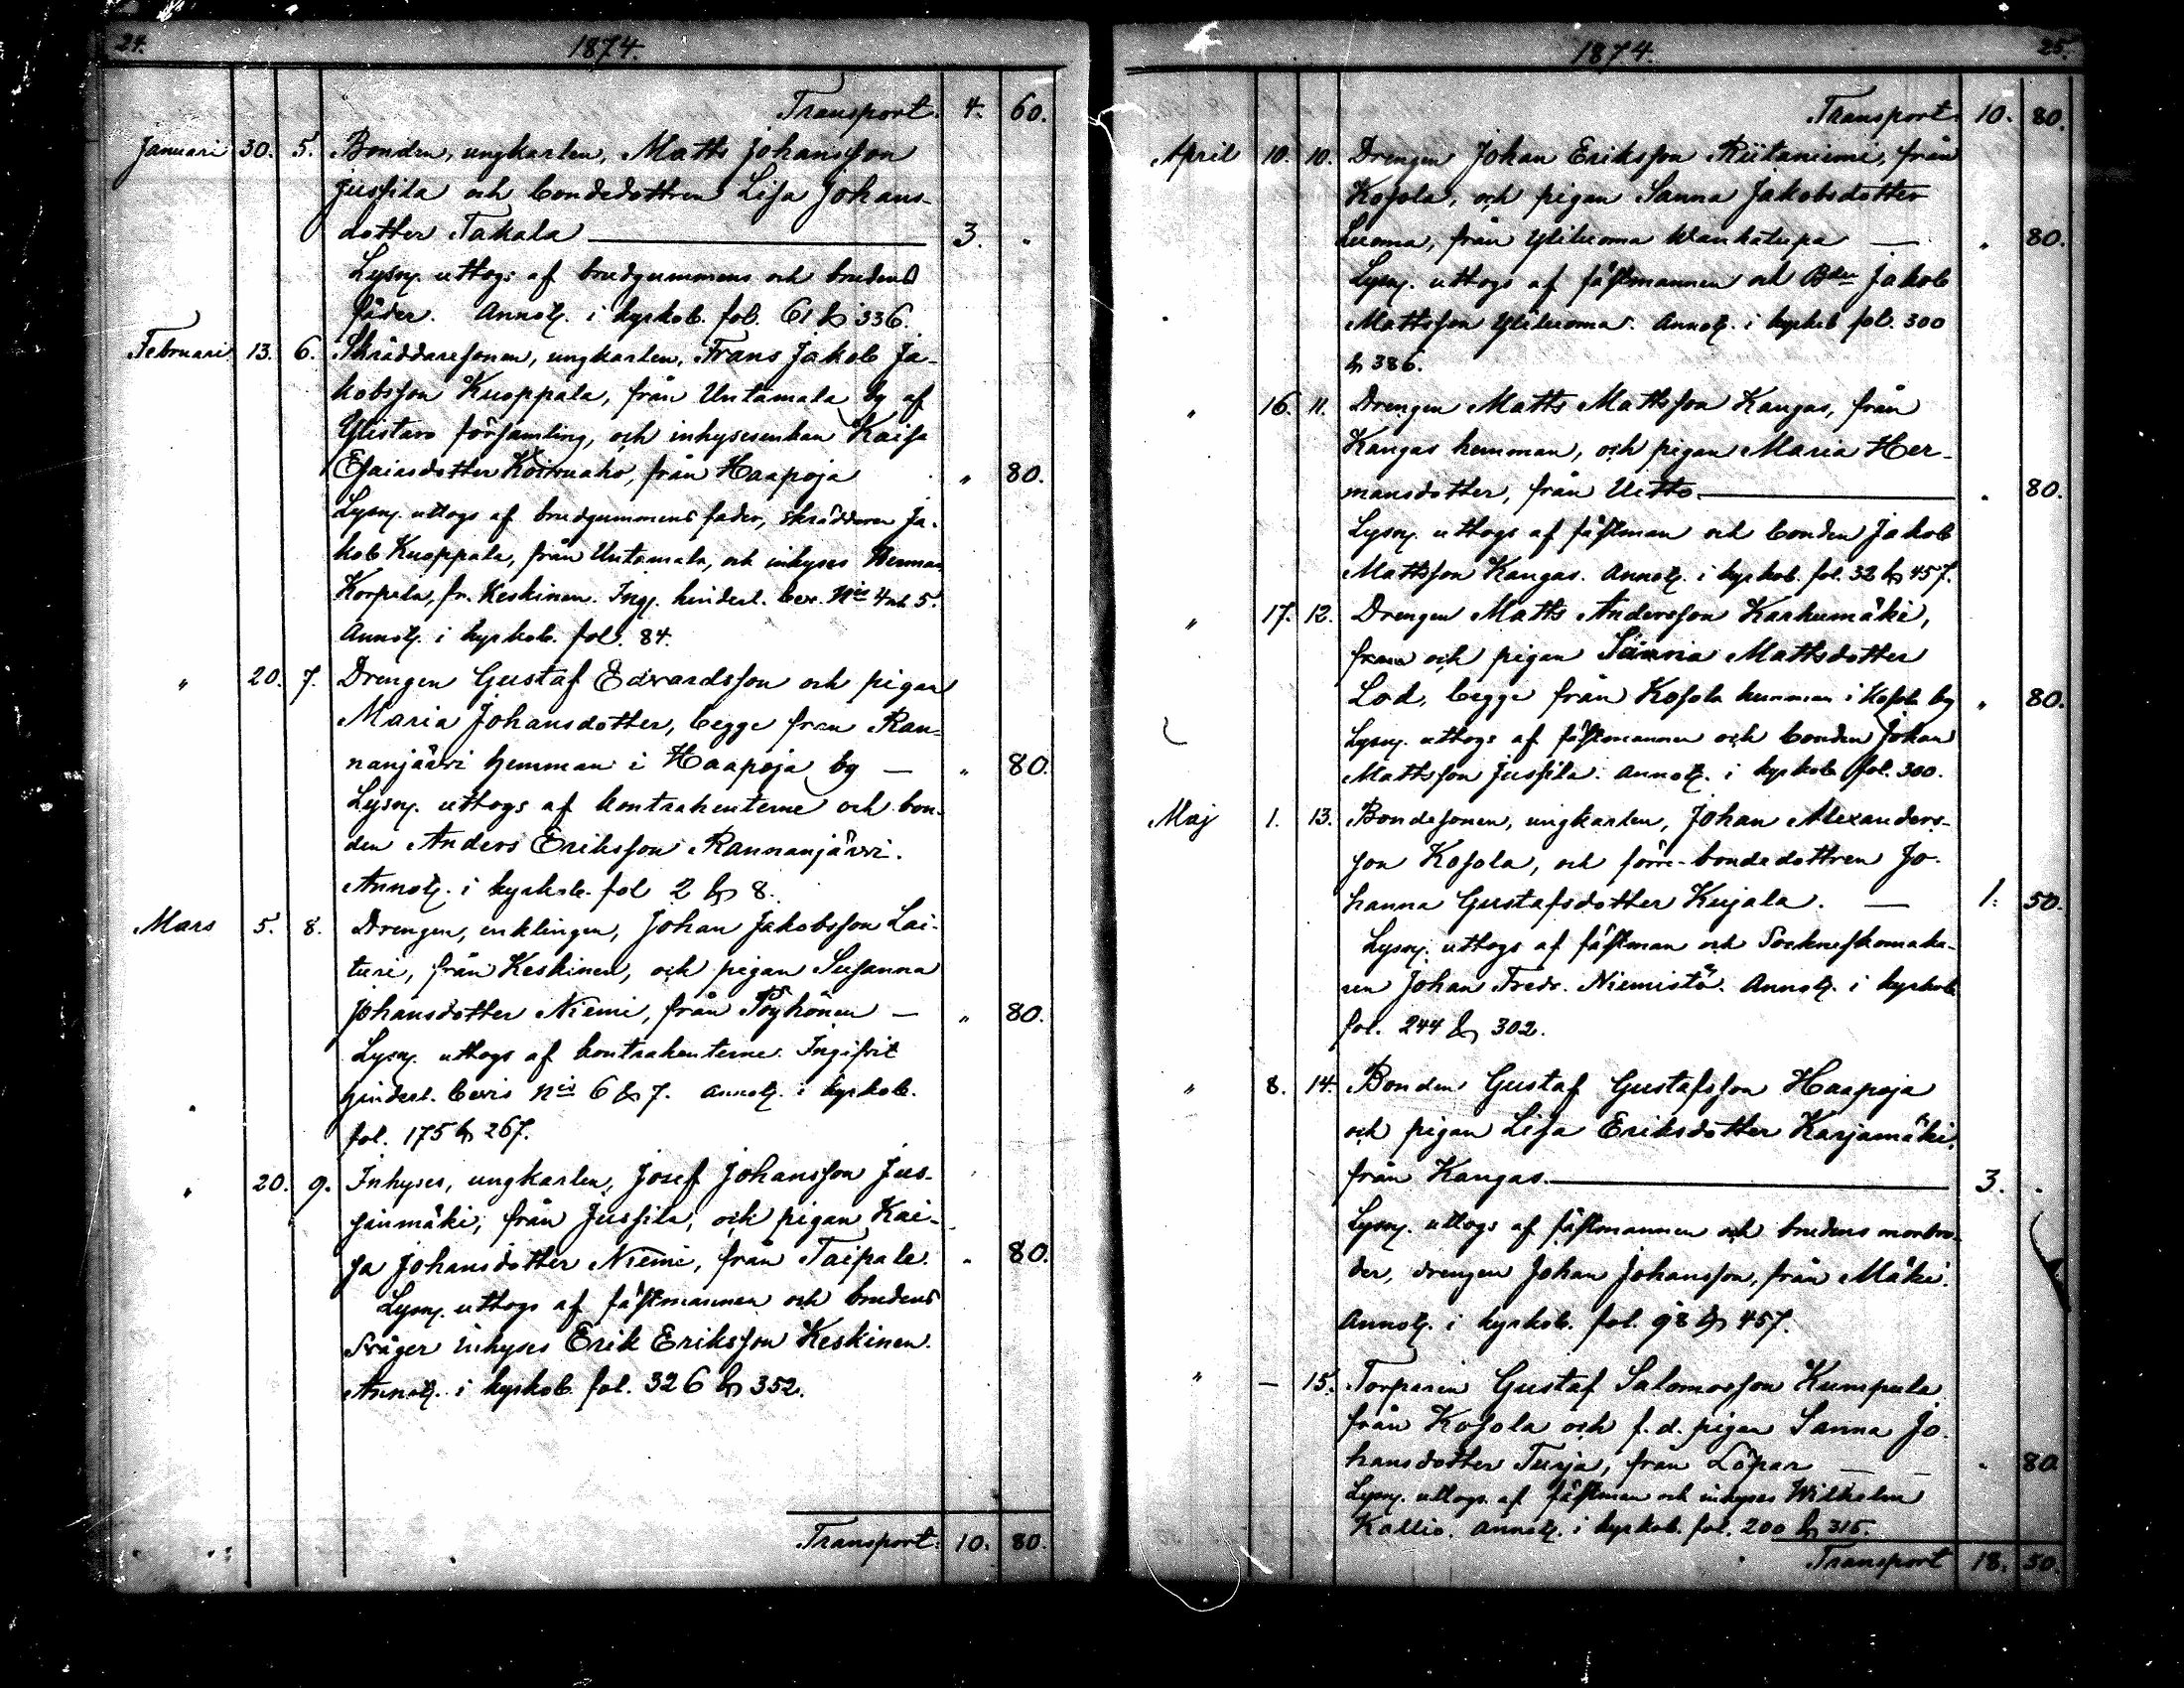 24. 1874.
Transport. 4. 60.
Januari 30. 5. Bonden, ungkarlen, Matts Johansson
Jussila och bondedottren Lisa Johans-
dotter Takala — 3. "
Lysng. uttogs af brudgummens och brudens
fäder. Annotg. i kyrkob. fol. 61 & 336.
Februari 13. 6. Skräddaresonen, ungkarlen, Frans Jakob Ja-
kobsson Kuoppala, från Untamala by af
Ylistaro församling, och inhysesenkan Kaisa
Esaiasdotter Koivuaho, från Haapoja " 80.
Lysng. uttogs af brudgummens fader, skräddaren Ja-
kob Kuoppala, från Untamala, och inhyses Herman
Korpela, fr. Keskinen. Ing. hinderl. bev. Nis 4 och 5.
Annotg. i kyrkob. fol. 84.
" 20. 7. Drengen Gustaf Edvardsson och pigan
Maria Johansdotter, begge från Ran-
nanjärvi hemman i Haapoja by — " 80.
Lysng. uttogs af kontrahenterne och bon-
den Anders Eriksson Rannanjärvi.
Annotg. i kyrkob. fol 2 & 8.
Mars 5. 8. Drengen, enklingen, Johan Jakobsson Lai-
turi, från Keskinen, och pigan Susanna
Johansdotter Niemi, från Pöyhönen — " 80.
Lysng. uttogs af kontrahenterne. Ingifvit
hinderl. bevis Nis 6 & 7. Annotg. i kyrkob.
fol. 175 & 267.
" 20. 9. Inhyses, ungkarlen, Josef Johansson Jus-
sinmäki, från Jussila, och pigan Kai-
sa Johansdotter Niemi, från Taipale. " 80.
Lysng. uttogs af fästmannen och brudens
svåger inhyses Erik Eriksson Keskinen.
Annotg. i kyrkob. fol. 326 & 352.
Transport. 10. 80.
1874. 25.
Transport. 10. 80.
April 10. 10. Drengen Johan Eriksson Riitaniemi, från
Kosola, och pigan Sanna Jakobsdotter
Luoma, från Yliluoma Wanhatupa — " 80.
Lysng. uttogs af fästmannen och Bden Jakob
Mattsson Yliluoma. Annotg. i kyrkob fol. 300
& 386.
" 16. 11. Drengen Matts Mattsson Kangas, från
Kangas hemman, och pigan Maria Her-
mansdotter, från Uitto. — " 80.
Lysng. uttogs af fästman och bonden Jakob
Mattsson Kangas. Annotg. i kyrkob. fol. 32 & 457.
" 17. 12. Drengen Matts Andersson Karhumäki,
från och pigan Sanna Mattsdotter
Lod, begge från Kosola hemman i Kosola by " 80.
Lysng. uttogs af fästmannen och bonden Johan
Mattsson Jussila. Annotg. i kyrkob. fol. 300.
Maj 1. 13. Bondesonen, ungkarlen, Johan Alexanders-
son Kosola, och förre-bondedottren Jo-
hanna Gustafsdotter Kujala. — 1. 50.
Lysng. uttogs af fästman och Sockneskomaka-
ren Johan Fredr. Niemistö. Annotg. i kyrkob.
fol. 244 & 302.
" 8. 14. Bonden Gustaf Gustafsson Haapoja
och pigan Lisa Eriksdotter Karjamäki,
från Kangas. — 3. "
Lysng. uttogs af fästmannen och brudens morbro-
der, drengen Johan Johansson, från Mäki.
Annotg. i kyrkob. fol. 98 & 457.
" — 15. Torparen Gustaf Salomosson Kumpula
från Kosola och f.d. pigan Sanna Jo-
hansdotter Turja, från Löpar — " 80
Lysng. uttogs af fästman och inhyses Wilhelm
Kallio. Annotg. i kyrkob. fol. 200 & 315.
Transport 18. 50.